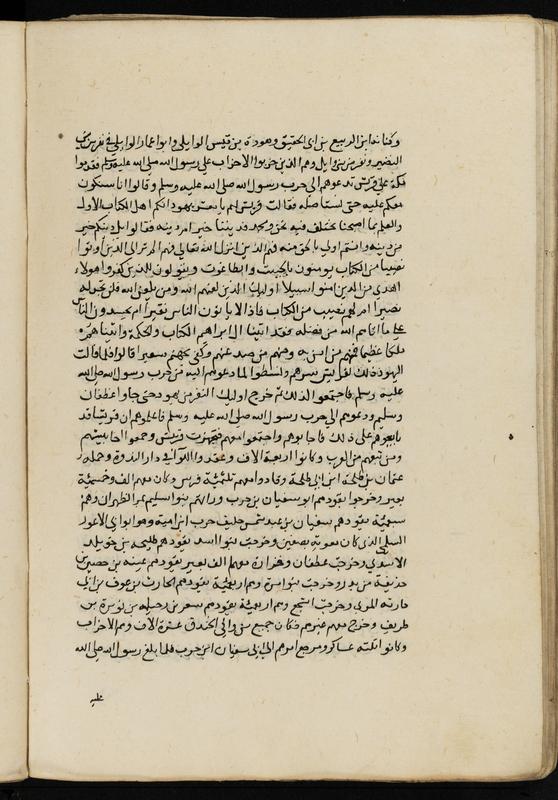 وكنانه بن الربيع بن ابى الحقيق وهوده بن قيس الوايلي وابو عمار الوايلي في نفر من بنى
النضير ونفر من بنى وايل وهم الذين حزبوا الاحزاب على رسول الله صلى الله عليه وسلم فقدموا
مكة على قريش تدعوهم الى حرب رسول الله صلى الله عليه وسلم وقالوا انا سنكون
معكم عليه حتى نستاصله فقالت قريش لهم يا معشر يهود انكم اهل الكتاب الاول
والعلم بما اصبحنا نختلف فيه نحن ومحمد فديننا خير ام دينه فقالوا بل دينكم خير
من دينه وانتم اولى بالحق منه فهم الذين انزل الله تعالى فيهم الم تر الى الذين اوتوا
نصيبا من الكتاب يومنون بالجبت والطاغوت ويقولون للذين كفروا هولاء
اهدى من الذين امنوا سبيلا اوليك الذين لعنهم الله ومن يلعن الله فلن تجد له
نصيرا ام لهم نصيب من الكتاب فاذا لا ياتون الناس نقيرا ام يحسدون الناس
على ما اتاهم الله من فضله فقد اتينا ال ابراهيم الكتاب والحكمة واتيناهم
ملكا عظيما فمنهم من امن به ومنهم من صد عنهم وكفى بجهنم سعيرا قالوا فلما قالت
اليهود ذلك لقريش سرهم ونشطوا لما دعوهم اليه من حرب رسول الله صلى الله
عليه وسلم فاجتمعوا لذلك ثم خرج اوليك النفر من يهود حتى جاوا غطفان
وسليم ودعوهم الى حرب رسول الله صلى الله عليه وسلم فاعلموهم ان قريشا قد
بايعوهم على ذلك فاجابوهم واجتمعوا معهم فتجهزت قريش وجمعوا احابيشهم
ومن تبعهم من العرب وكانوا اربعة الاف وعقدوا اللوا في دار الندوة وحمله
عثمان بن طلحة ابن ابى طلحة وقادوا معهم ثلثمئة فرس وكان معهم الف وخمسمئة
بعير وخرجوا يقودهم ابو سفيان بن حرب ووافتهم بنوا سليم بمر الظهران وهم
سبعمئة يقودهم سفيان بن عبد شمس حليف حرب ابن امية وهو ابو ابى الاعور
السلمي الذى كان معوية بصفين وخرجت بنوا اسد يقودهم طليحه بن خويلد
الاسدي وخرجت غطفان وفزاره معهم الف بعير يقودهم عيينه بن حصن بن
حذيفة بن بدر وخرجت بنوا مرة وهم اربعمئة يقودهم الحارث بن عوف بن ابى
حارثه المرى وخرجت اشجع وهم اربعمئة يقودهم مسعر بن رحيله بن نويرة بن
طريف وخرج معهم غيرهم فكان جميع من وافى الخندق عشرة الاف وهم الاحزاب
وكانوا ثلثة عساكر ومرجع امرهم الى ابى سفيان ابن حرب فلما بلغ رسول الله صلى الله
عليه